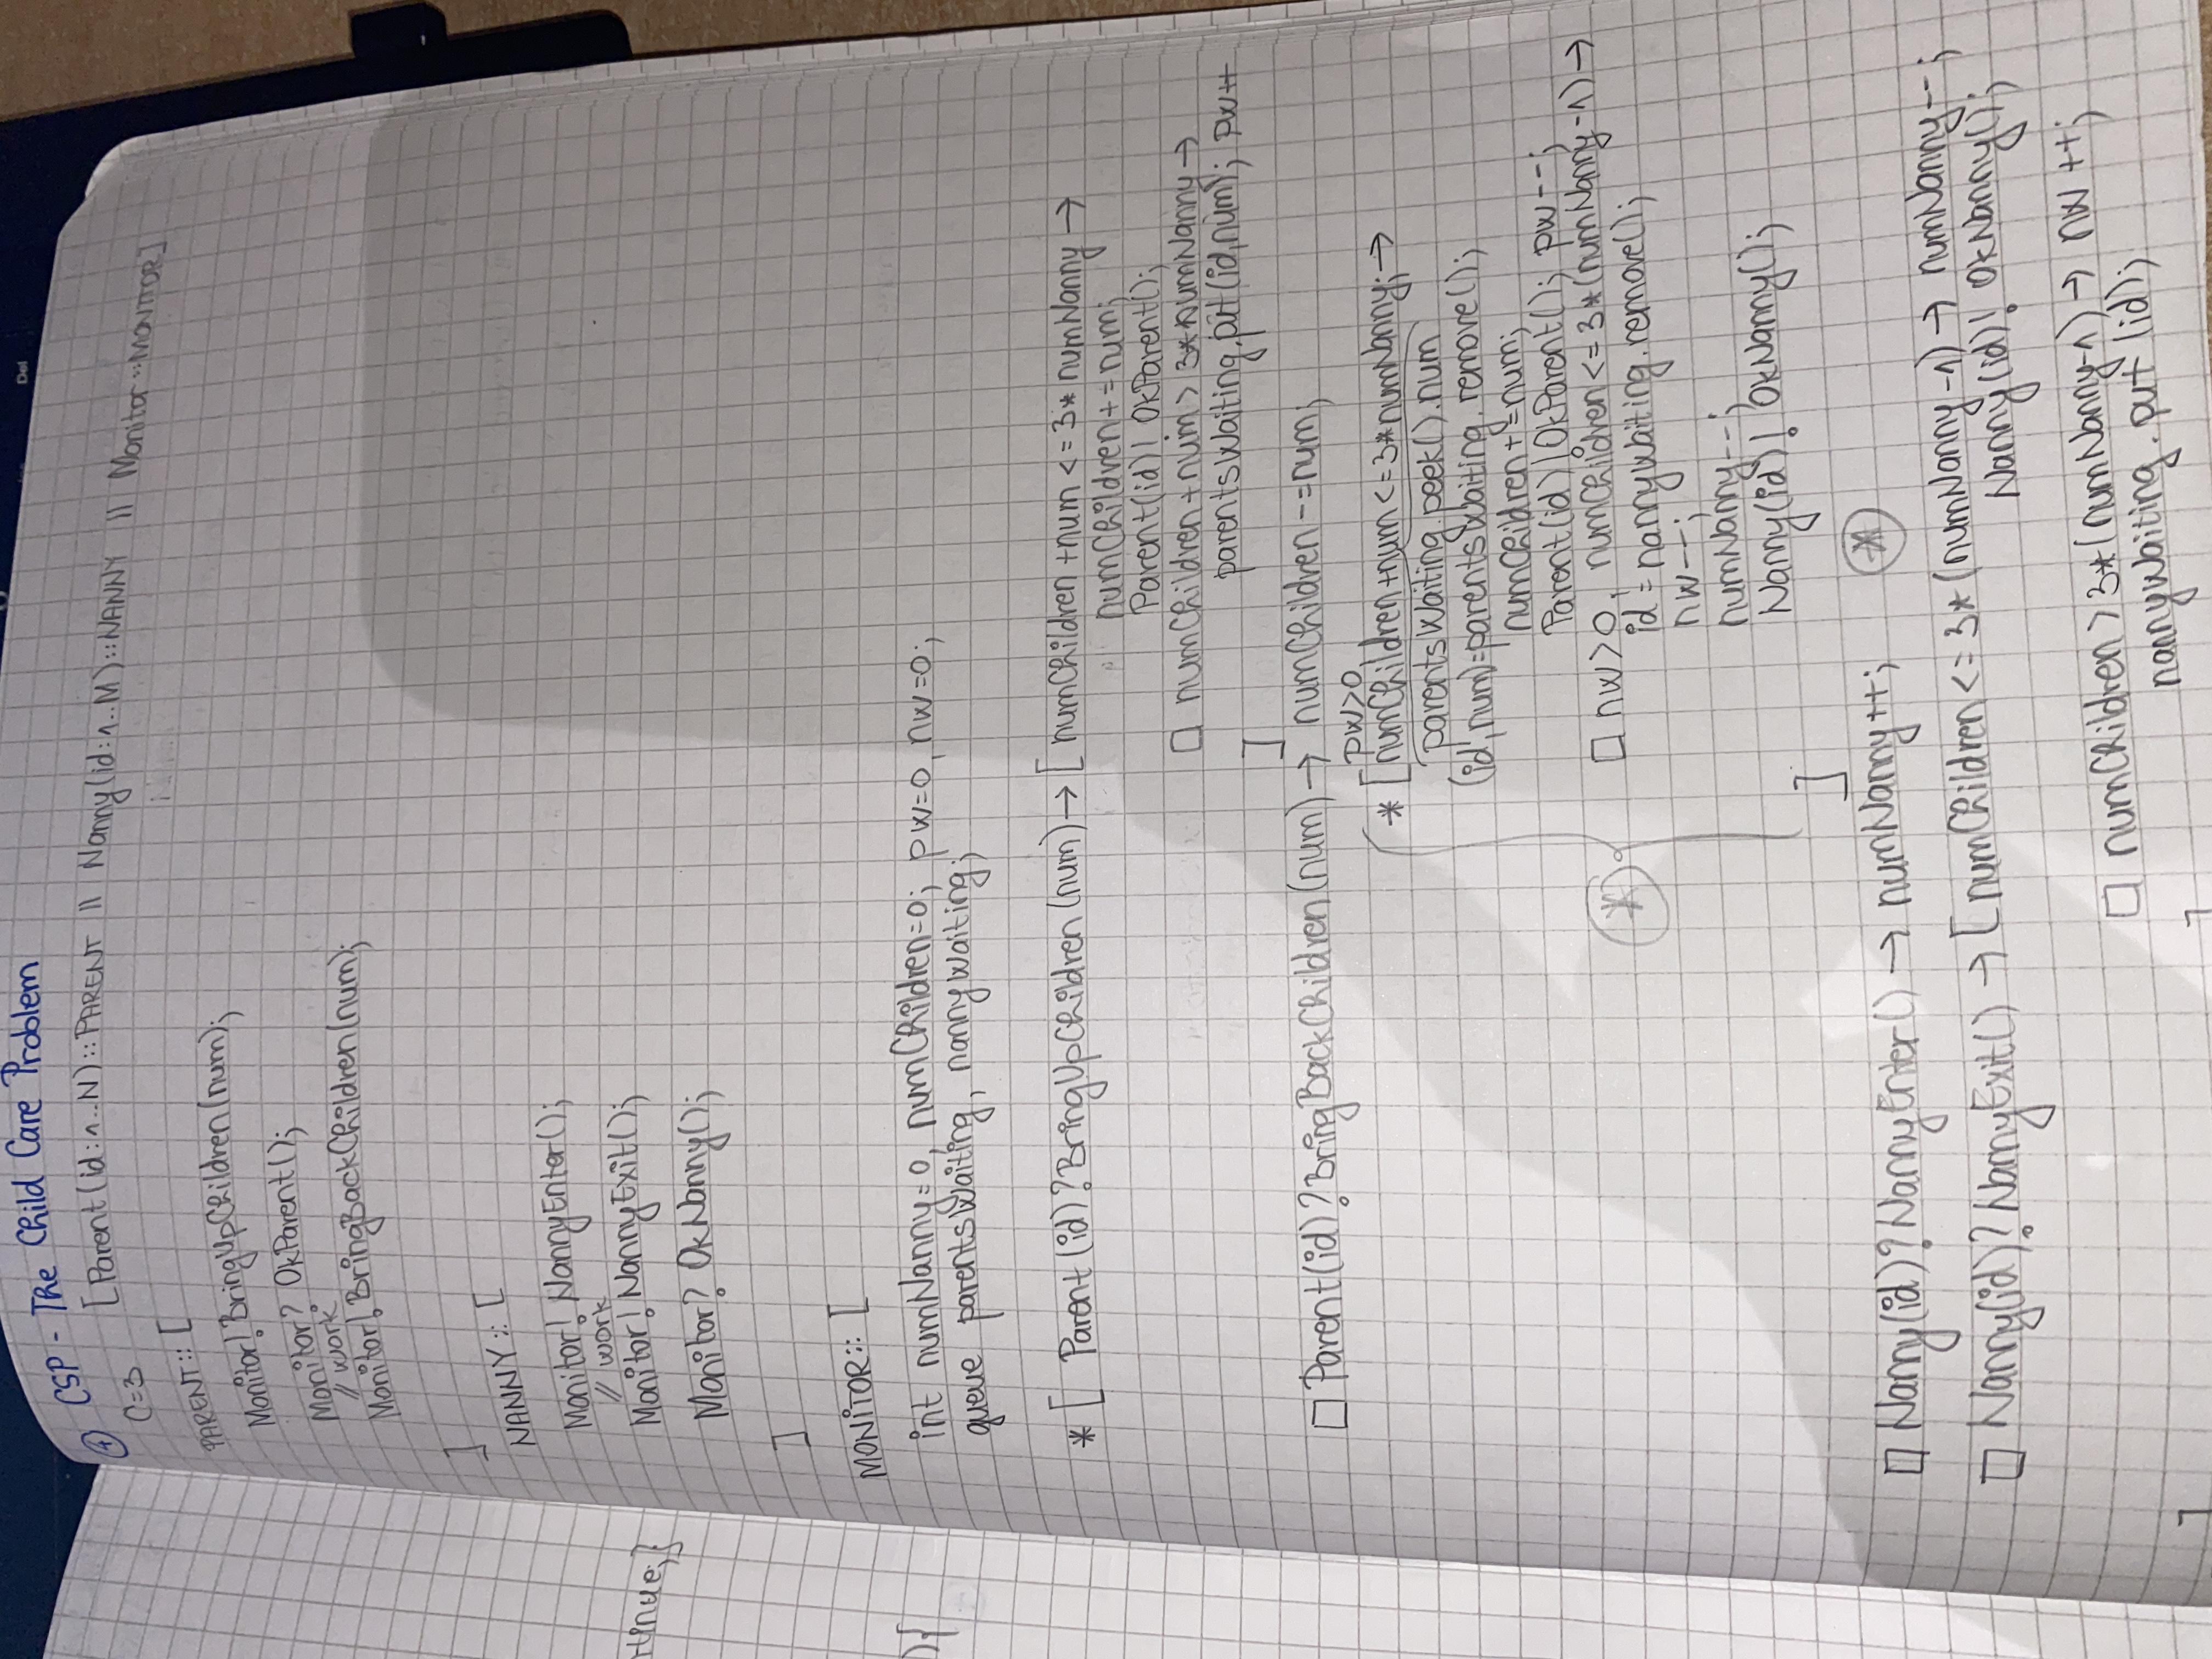 Del
④ CSP - The Child Care Problem
[Parent(id:1..N)::PARENT || Nanny(id:1..M)::NANNY || Monitor::MONITOR]
C=3
PARENT:: [
Monitor! BringUpChildren(num);
Monitor? OkParent();
// work
Monitor! BringBackChildren(num);
]
NANNY:: [
Monitor! NannyEnter();
// work
tinue;}
Monitor! NannyExit();
Monitor? OkNanny();
]
MONITOR:: [
){
int numNanny=0, numChildren=0; pw=0, nw=0;
queue parentsWaiting, nannyWaiting;
*[ Parent(id)?BringUpChildren(num)→ [ numChildren+num <= 3* numNanny →
numChildren+=num;
Parent(id)! OkParent();
□ numChildren+num > 3*numNanny →
parentsWaiting.put(id,num); pw++
]
□ Parent(id)?BringBackChildren(num)→ numChildren-=num;
pw>0,
*[numChildren+num<=3*numNanny; →
parentsWaiting.peek().num
(id,num)=parentsWaiting.remove();
numChildren+=num;
Parent(id)!OkParent(); pw--;
* □ nw>0, numChildren<=3*(numNanny-1) →
id = nannyWaiting.remove();
nw--;
numNanny--;
Nanny(id)! OkNanny();
]
□ Nanny(id)?NannyEnter() → numNanny++; *
□ Nanny(id)?NannyExit() → [numChildren <= 3*(numNanny-1) → numNanny--;
Nanny(id)! OkNanny();
□ numChildren > 3*(numNanny-1) → nw ++;
nannyWaiting.put (id);
] ]